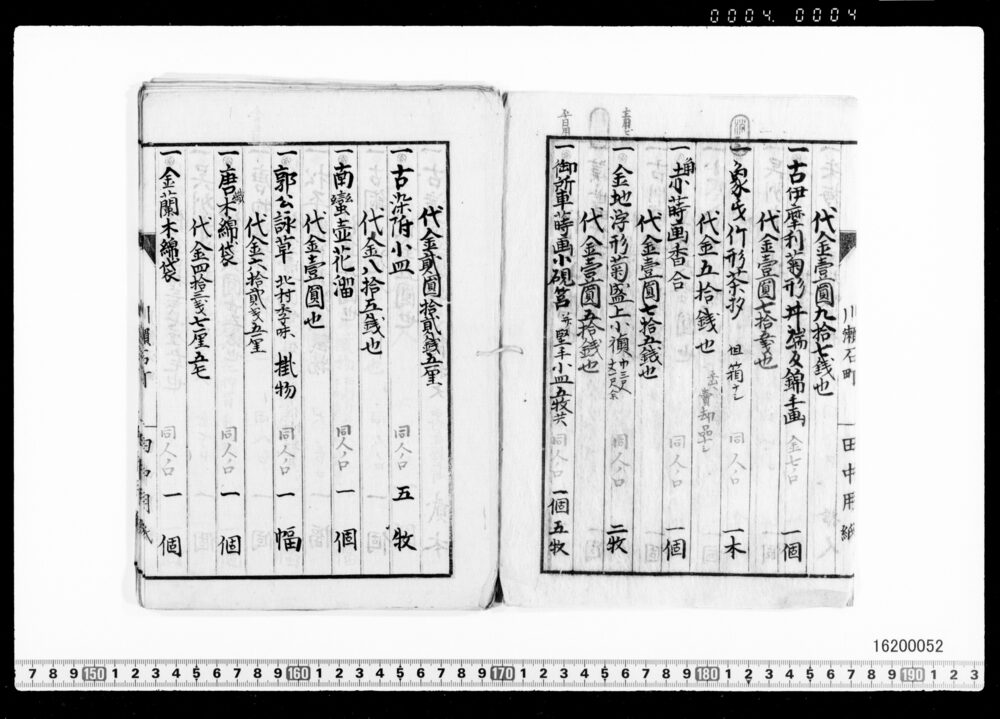 0004. 0004
一古伊摩利菊形丼瑞及錦手画 金七ノ口 一個
代金壹圓九拾七銭也
一象牙竹形茶杓 但箱ナシ 同人ノ口 一本
代金壹圓七拾五銭也
一赤蒔画香合 同人ノ口 一個
代金五拾銭也 賣却品ナシ
一金地浮形菊盛上小襖 巾三尺 丈一尺余 同人ノ口 二牧
代金壹圓七拾五銭也
一御所車蒔画小硯筥 并ニ堅手小皿五牧共 同人ノ口 一個五牧
代金壹圓五拾銭也
川瀬石町
田中用紙
一古染附小皿 五牧
代金貳圓拾貳銭五厘
一南蠻壺花溜 同人ノ口 一個
代金八拾五銭也
一郭公詠草 北村季吟 掛物 同人ノ口 一幅
代金壹圓也
一唐木綿袋 同人ノ口 一個
代金六拾貳銭五厘
一金蘭木綿袋 同人ノ口 一個
代金四拾三銭七厘五毛
16200052
7 8 9 150 1 2 3 4 5 6 7 8 9 160 1 2 3 4 5 6 7 8 9 170 1 2 3 4 5 6 7 8 9 180 1 2 3 4 5 6 7 8 9 190 1 2 3